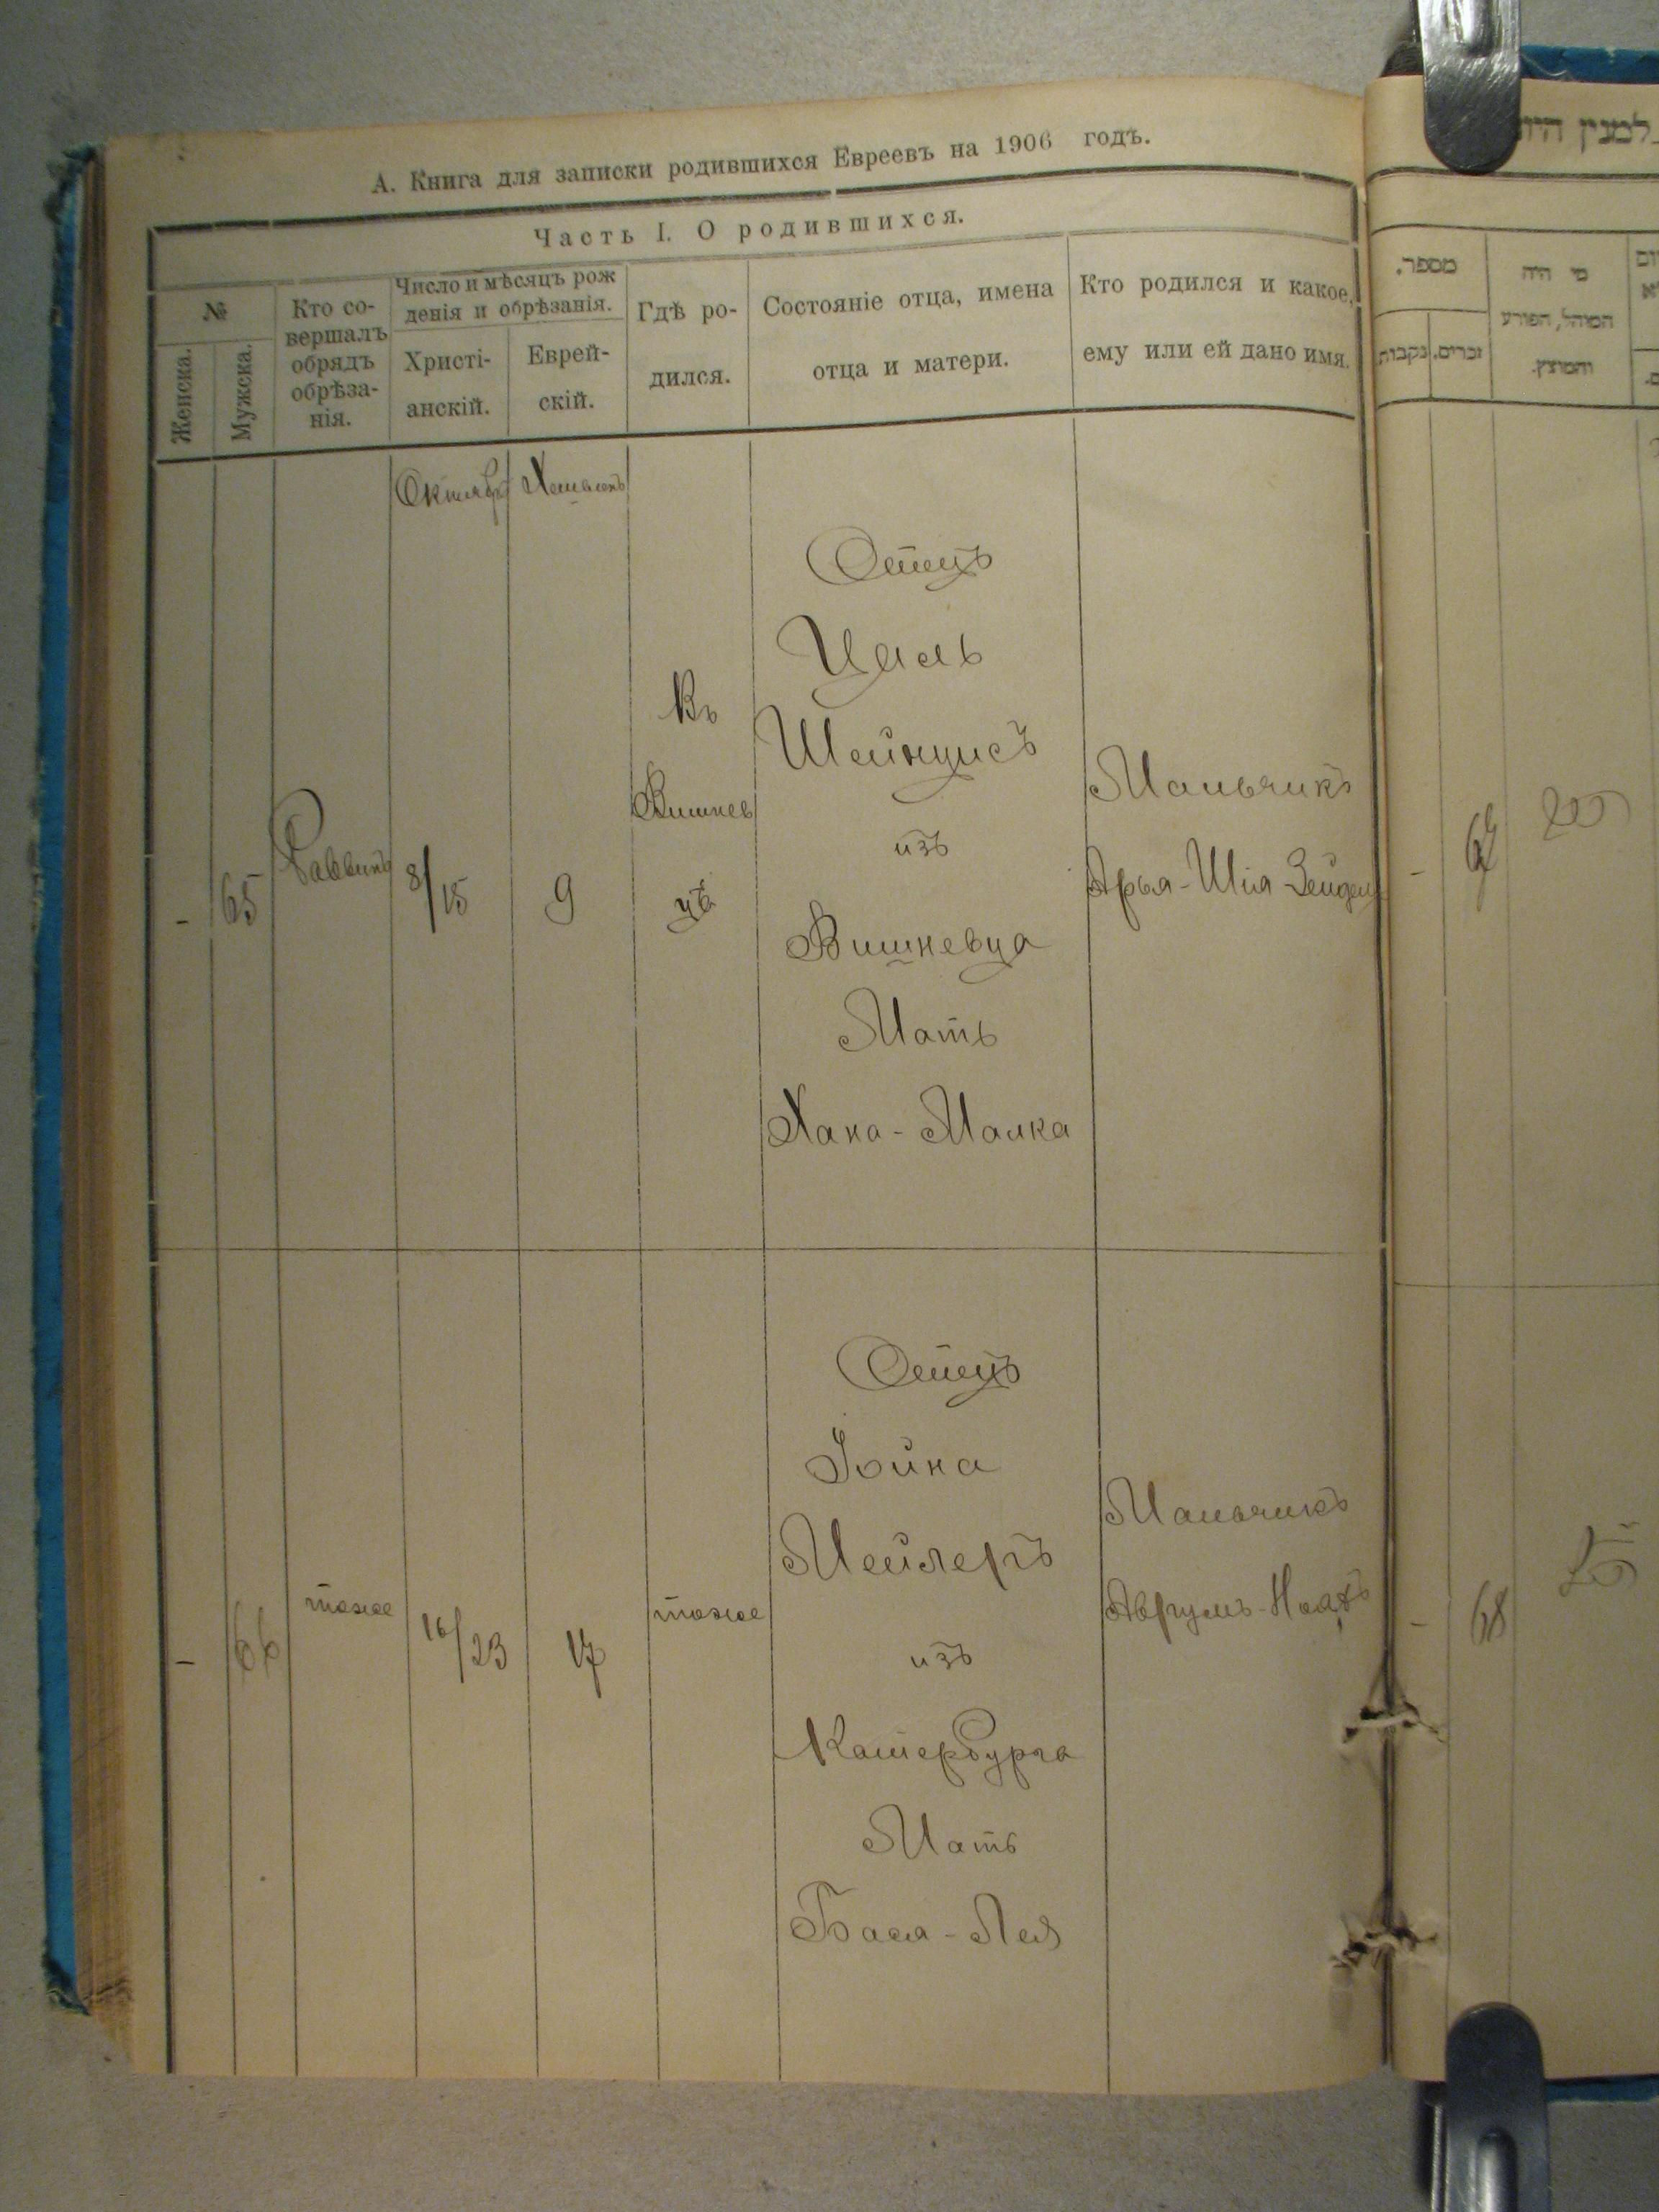 А. Книга для записки родившихся Евреевъ на 1906 годъ.
Часть I. О родившихся.
№
Женска.
Мужска.
Кто со-
вершалъ
обрядъ
обрѣза-
нія.
Число и мѣсяцъ рож
денія и обрѣзанія.
Христі-
анскій.
Еврей-
скій.
Гдѣ ро-
дился.
Состояніе отца, имена
отца и матери.
Кто родился и какое,
ему или ей дано имя.
Октябрь
-
65
Раввинъ
8/15
9
Въ
Вишнев
цѣ
Отецъ
Цаль
Шейнцисъ
изъ
Вишневца
Мать
Хана-Малка
Мальчикъ
Арья-Шія-Зейдель
-
66
тоже
16/23
17
тоже
Отецъ
Іойна
Мейлеръ
изъ
Катербурга
Мать
Бася-Лея
Мальчикъ
Аврумъ-Ноахъ
למנין היה
מספר.
נקבות
זכרים.
מי היה
המוהל, הפורע
והמוצץ.
-
67
-
68